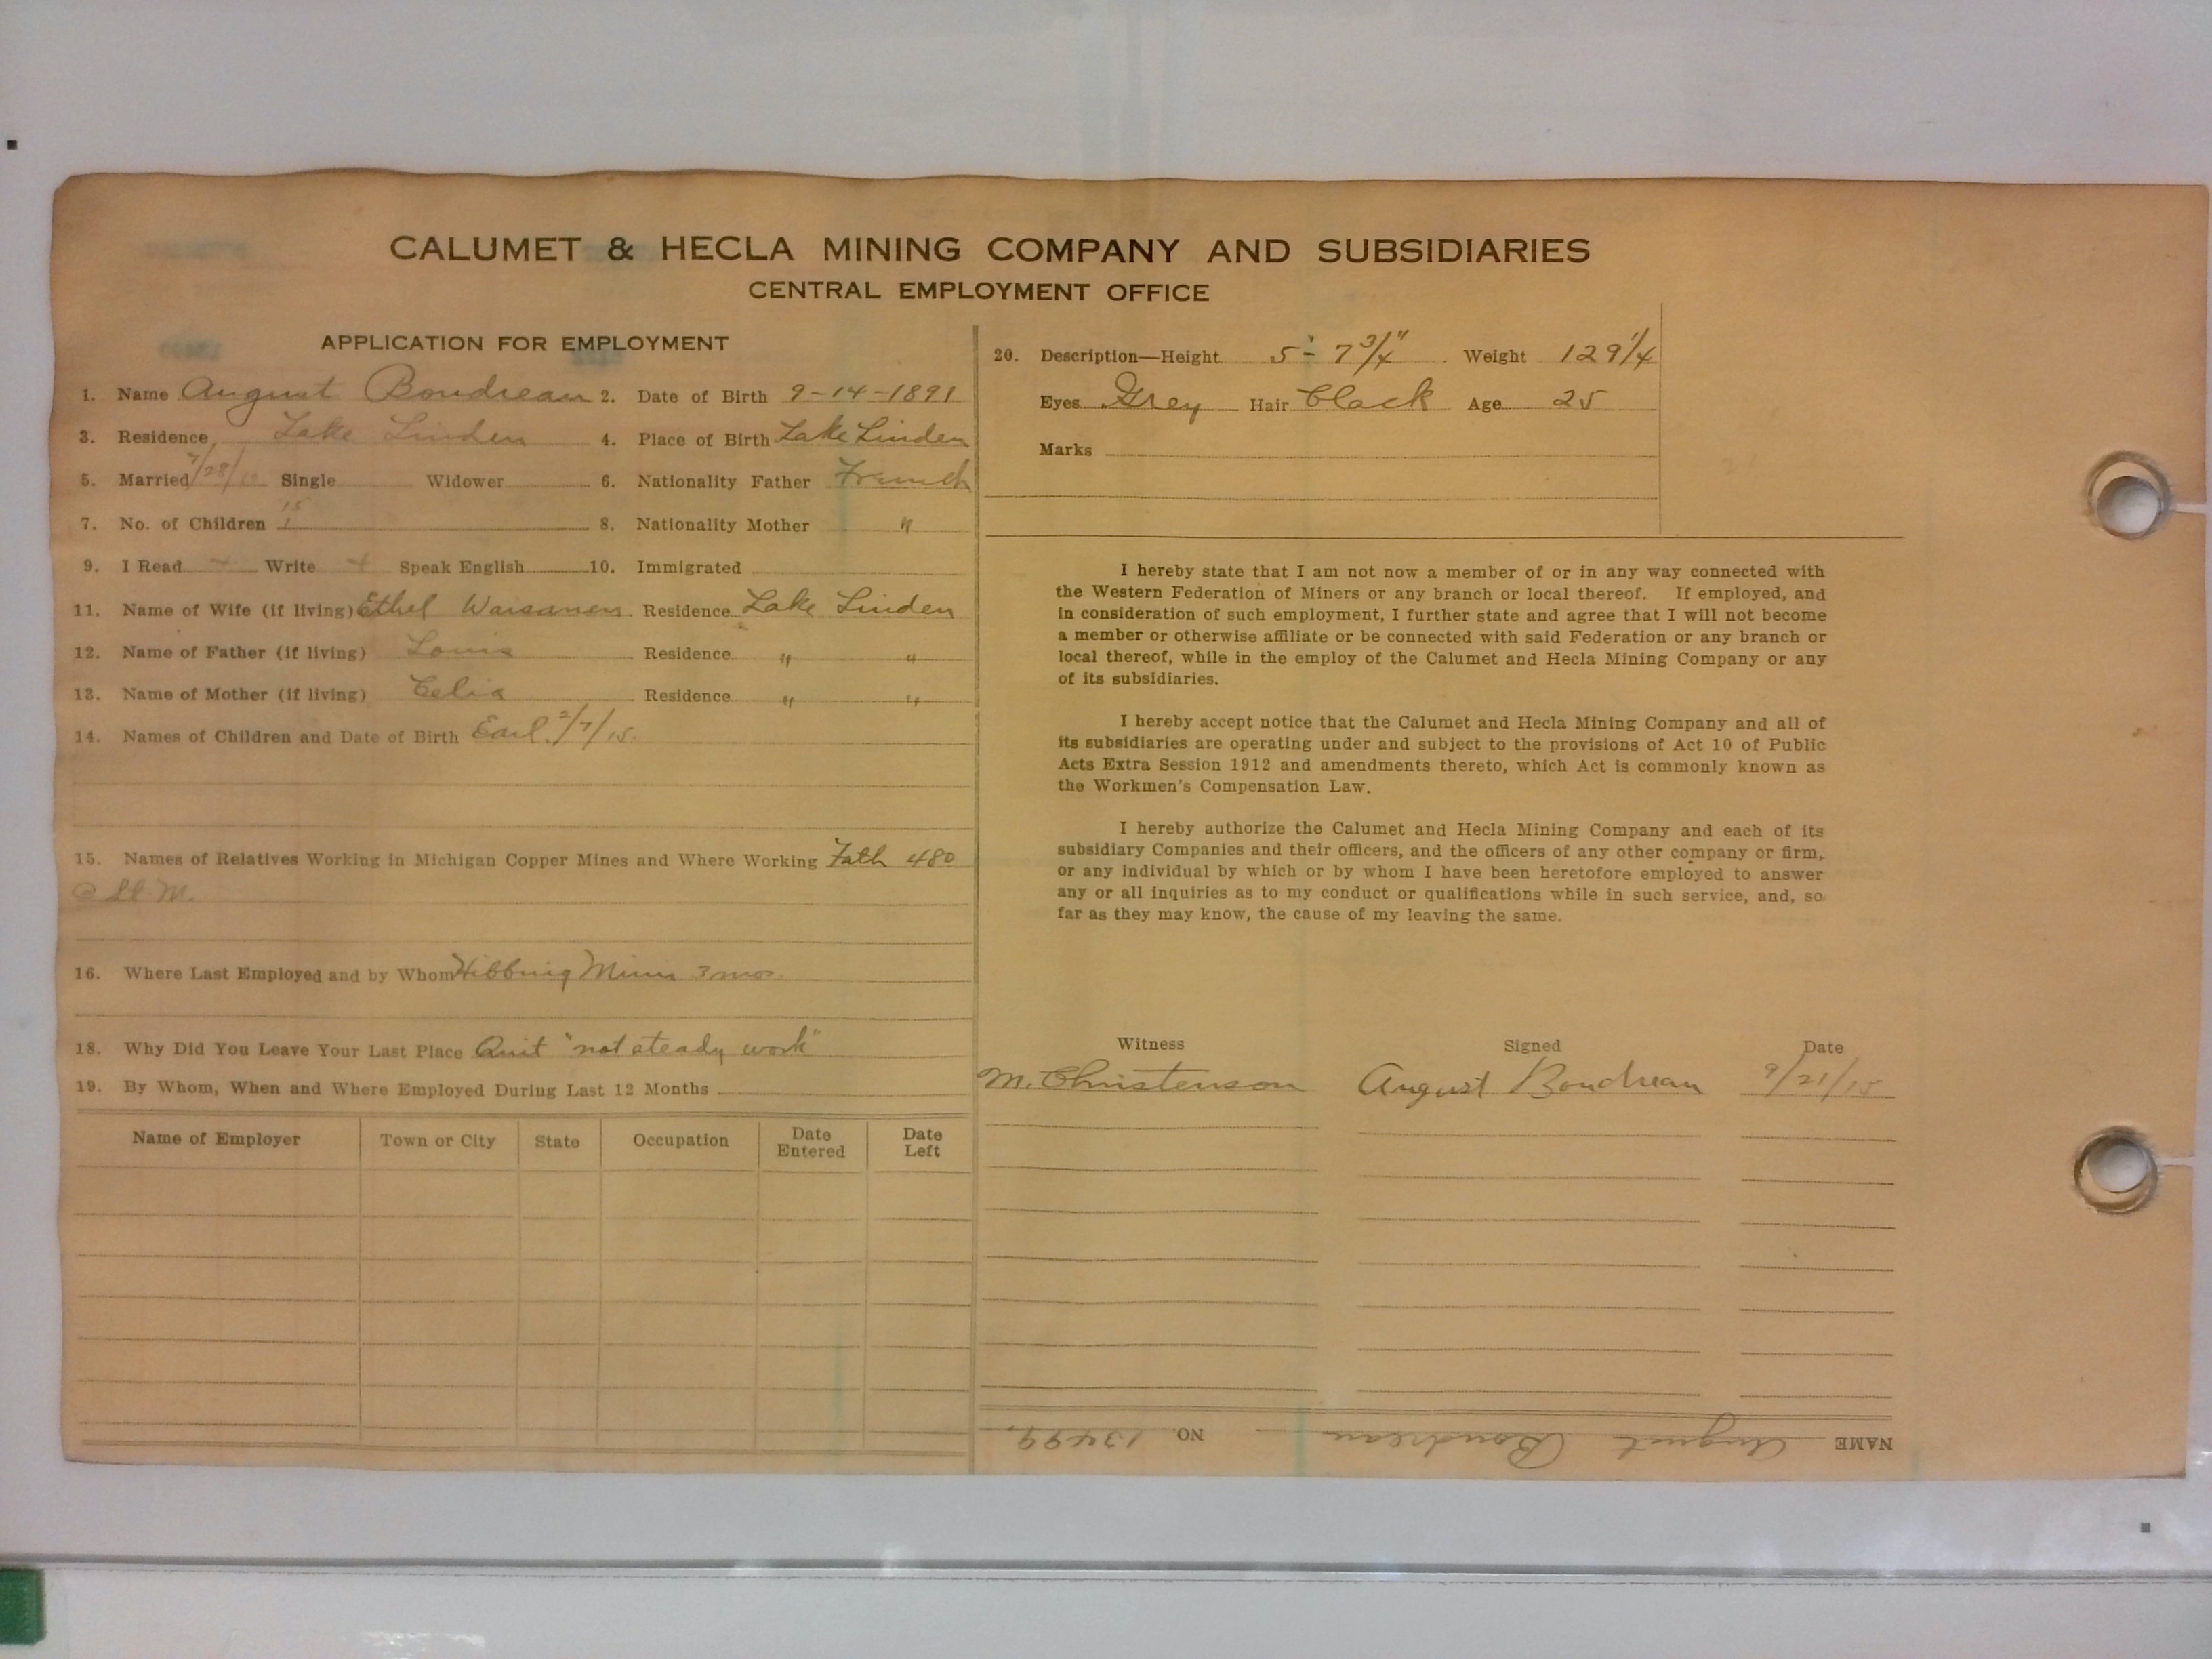 CALUMET & HECLA MINING COMPANY AND SUBSIDIARIES
CENTRAL EMPLOYMENT OFFICE
APPLICATION FOR EMPLOYMENT
1. Name August Boudreau 2. Date of Birth 9-14-1891
3. Residence Lake Linden 4. Place of Birth Lake Linden
5. Married 7/28/ Single Widower 6. Nationality Father French
15
7. No. of Children 1 8. Nationality Mother "
9. I Read + Write + Speak English 10. Immigrated
11. Name of Wife (if living) Ethel Waisanen Residence Lake Linden
12. Name of Father (if living) Louis Residence " "
13. Name of Mother (if living) Celia Residence " "
14. Names of Children and Date of Birth Earl 2/7/15.
15. Names of Relatives Working in Michigan Copper Mines and Where Working Fath 480
16. Where Last Employed and by Whom Hibbing Minn 3 mos.
18. Why Did You Leave Your Last Place Quit "not steady work"
19. By Whom, When and Where Employed During Last 12 Months
Name of Employer Town or City State Occupation Date Entered Date Left
20. Description—Height 5'- 7 3/4" Weight 129 1/4
Eyes Grey Hair Black Age 25
Marks
I hereby state that I am not now a member of or in any way connected with
the Western Federation of Miners or any branch or local thereof. If employed, and
in consideration of such employment, I further state and agree that I will not become
a member or otherwise affiliate or be connected with said Federation or any branch or
local thereof, while in the employ of the Calumet and Hecla Mining Company or any
of its subsidiaries.
I hereby accept notice that the Calumet and Hecla Mining Company and all of
its subsidiaries are operating under and subject to the provisions of Act 10 of Public
Acts Extra Session 1912 and amendments thereto, which Act is commonly known as
the Workmen's Compensation Law.
I hereby authorize the Calumet and Hecla Mining Company and each of its
subsidiary Companies and their officers, and the officers of any other company or firm,
or any individual by which or by whom I have been heretofore employed to answer
any or all inquiries as to my conduct or qualifications while in such service, and, so
far as they may know, the cause of my leaving the same.
Witness Signed Date
M. Christenson August Boudreau 9/21/15
NAME August Boudreau NO. 13499